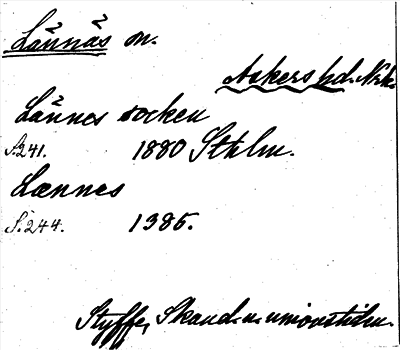 Lännäs sn.
Askers hd. Nrk.
Lännes socken
S. 241. 1880 Sthlm.
Lænnes
S. 244. 1385.
Styffe, Skand. u. unionstiden.